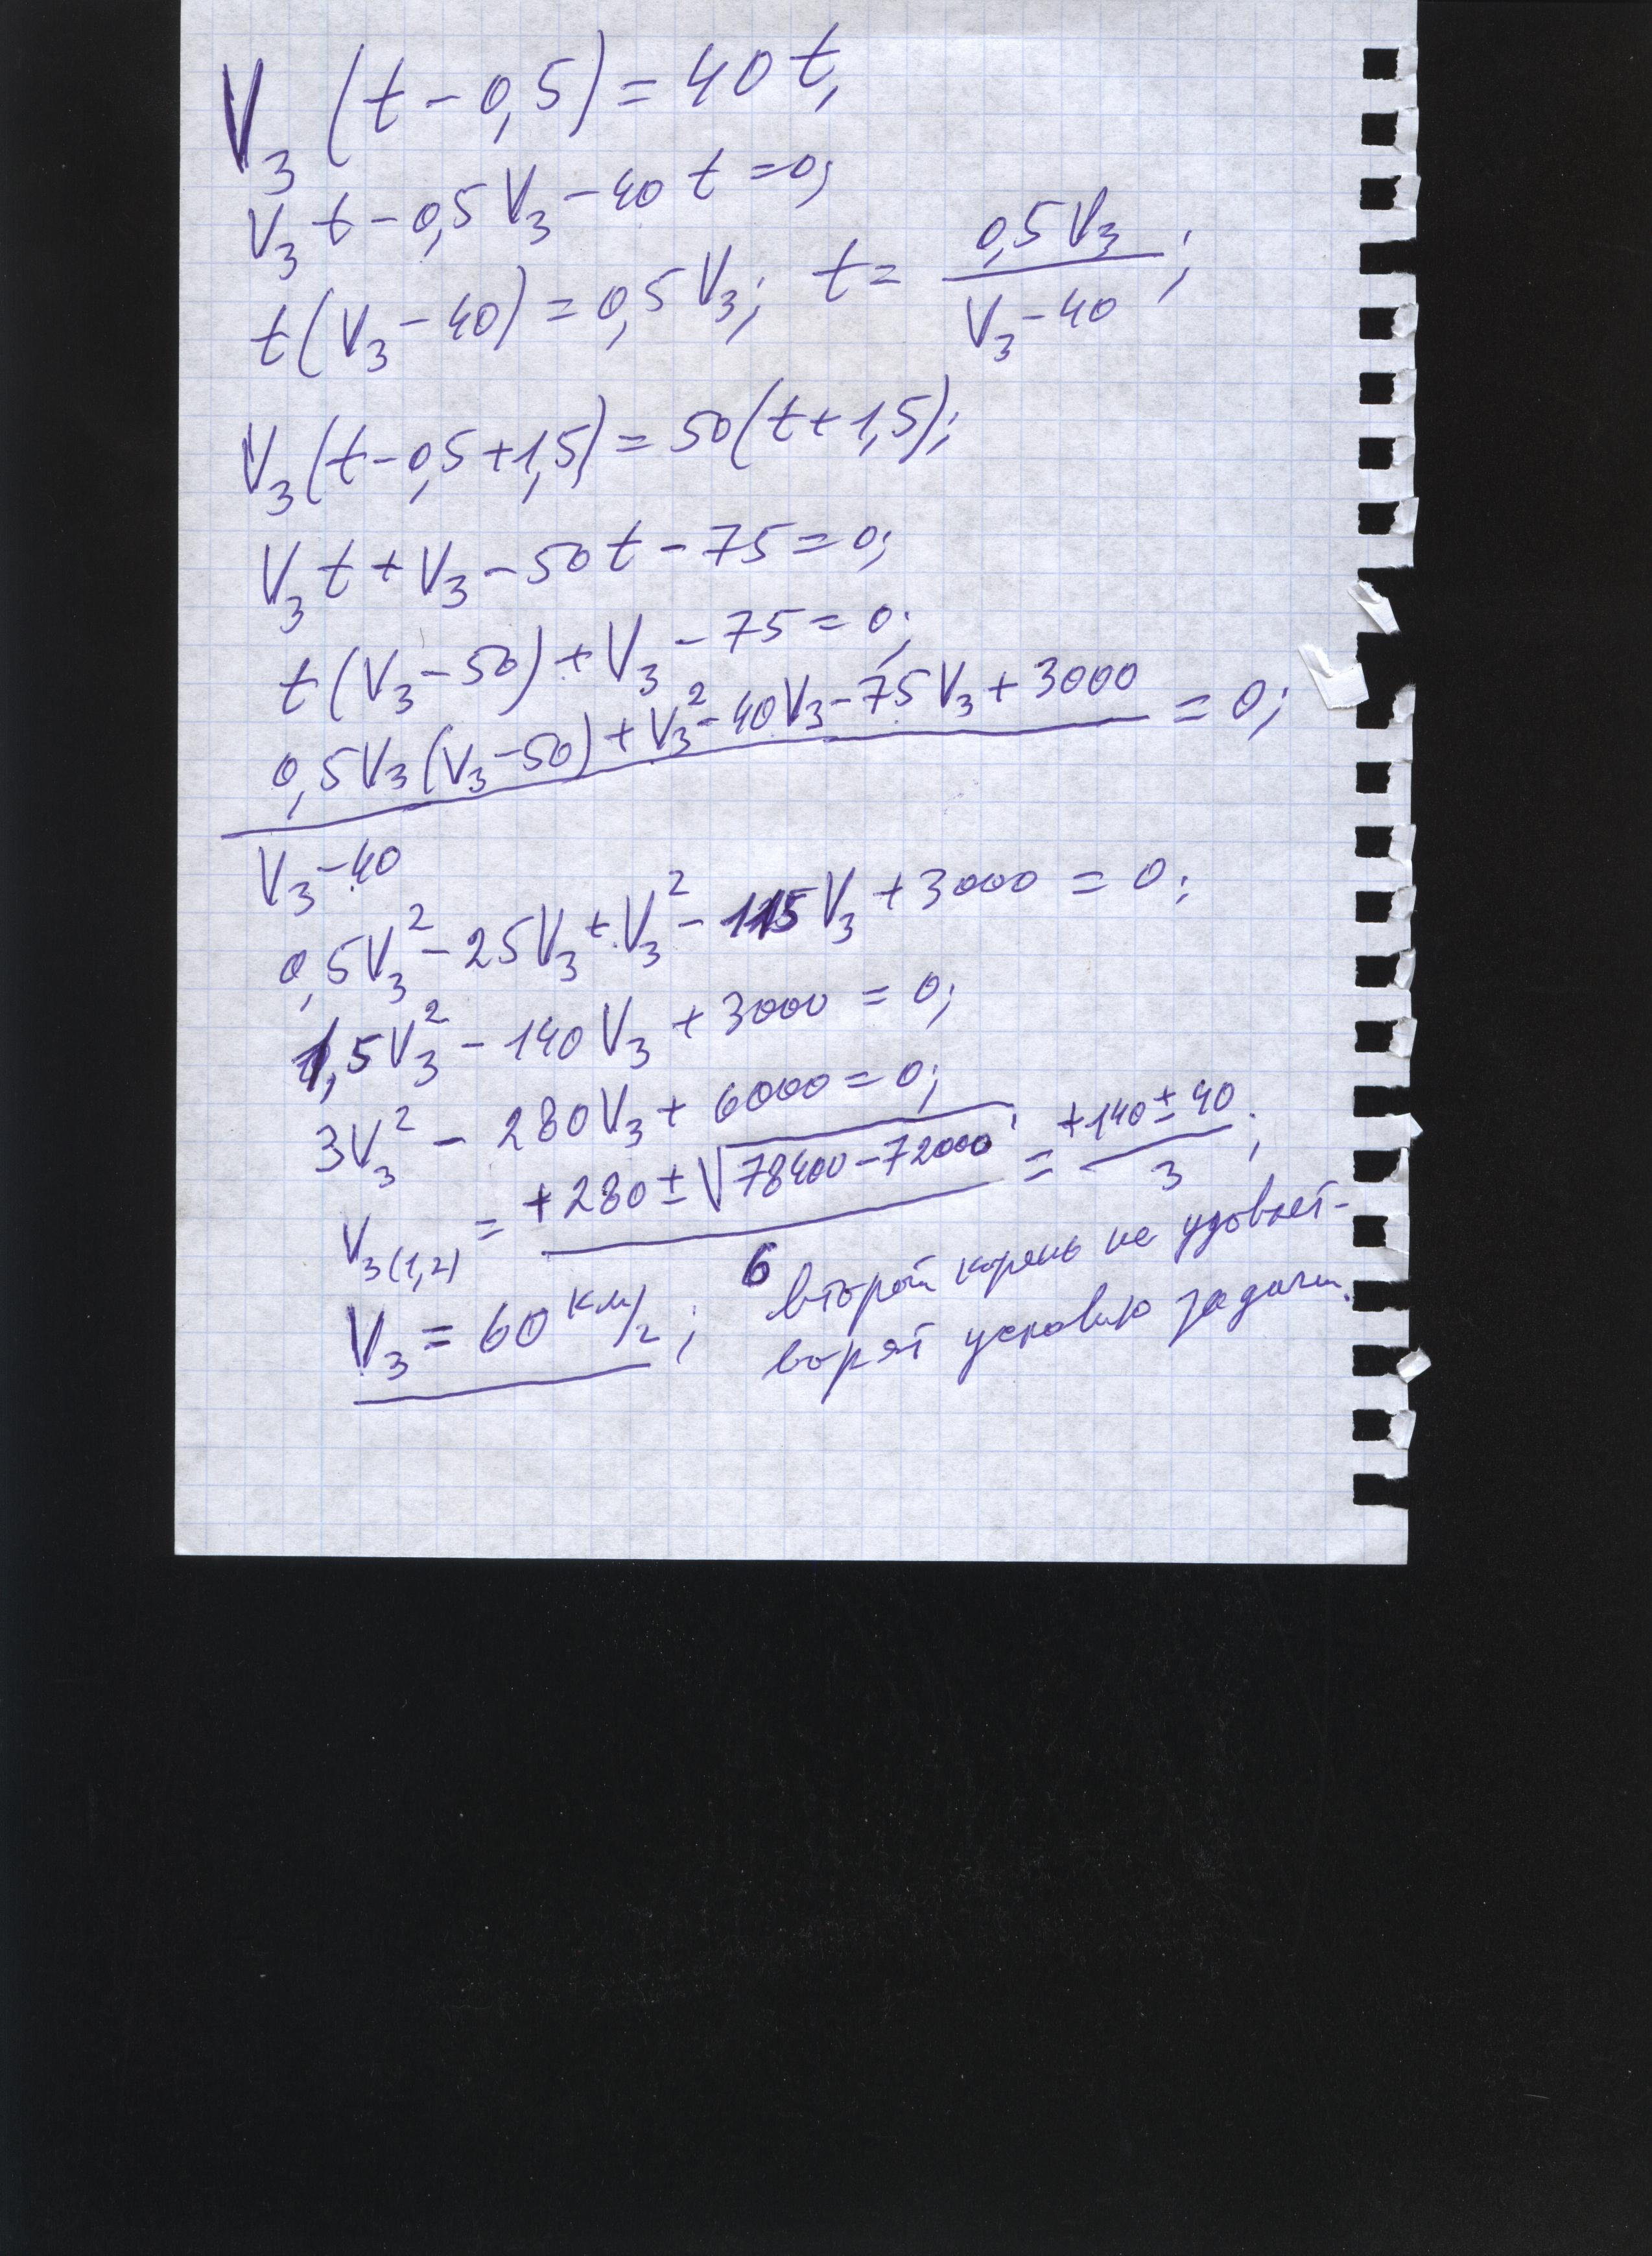 V₃ (t - 0,5) = 40 t,
V₃ t - 0,5 V₃ - 40 t = 0;
t (V₃ - 40) = 0,5 V₃; t = 0,5 V₃ / V₃ - 40;
V₃ (t - 0,5 + 1,5) = 50 (t + 1,5);
V₃ t + V₃ - 50 t - 75 = 0;
t (V₃ - 50) + V₃ - 75 = 0;
0,5 V₃ (V₃ - 50) + V₃² - 40 V₃ - 75 V₃ + 3000 / V₃ - 40 = 0;
0,5 V₃² - 25 V₃ + V₃² - 115 V₃ + 3000 = 0;
1,5 V₃² - 140 V₃ + 3000 = 0;
3 V₃² - 280 V₃ + 6000 = 0;
V₃(1,2) = +280 ± √78400 - 72000 / 6 = +140 ± 40 / 3;
V₃ = 60 км/г; второй корень не удовлет-
ворят условию задачи.